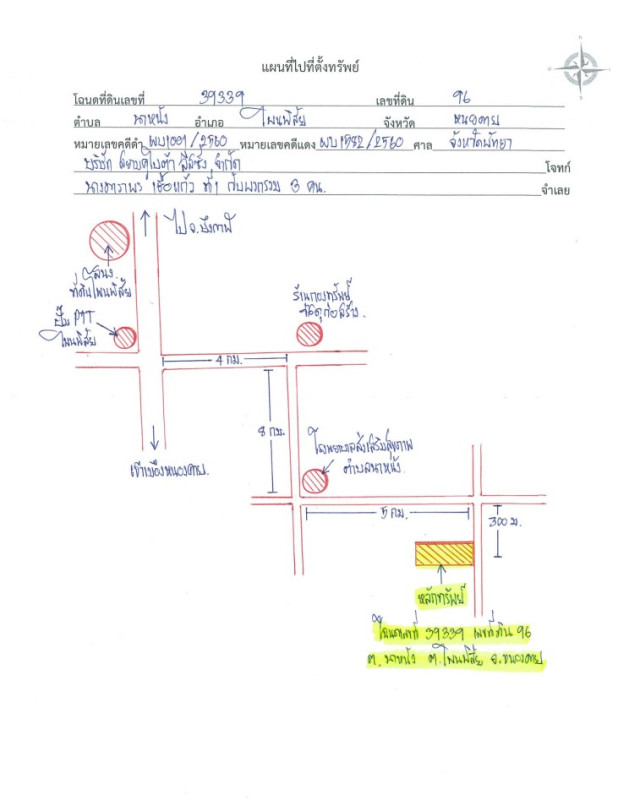 แผนที่ไปที่ตั้งทรัพย์
โฉนดที่ดินเลขที่ 39339 เลขที่ดิน 96
ตำบล นาหนัง อำเภอ โพนพิสัย จังหวัด หนองคาย
หมายเลขคดีดำ ผบ1001/2560 หมายเลขคดีแดง ผบ1572/2560 ศาล จังหวัดพัทยา
บริษัท ลีสซิ่ง จำกัด โจทก์
ที่ 1 กับพวกรวม 3 คน. จำเลย
ไป จ.บึงกาฬ
สนง.
ที่ดินโพนพิสัย
ปั๊ม PTT
โพนพิสัย
ร้านกองทรัพย์
วัสดุก่อสร้าง.
4 กม.
8 กม.
โรงพยาบาลส่งเสริมสุขภาพ
ตำบลนาหนัง.
เข้าเมืองหนองคาย.
5 กม.
300 ม.
หลักทรัพย์
โฉนดเลขที่ 39339 เลขที่ดิน 96
ต. นาหนัง ต.โพนพิสัย จ.หนองคาย